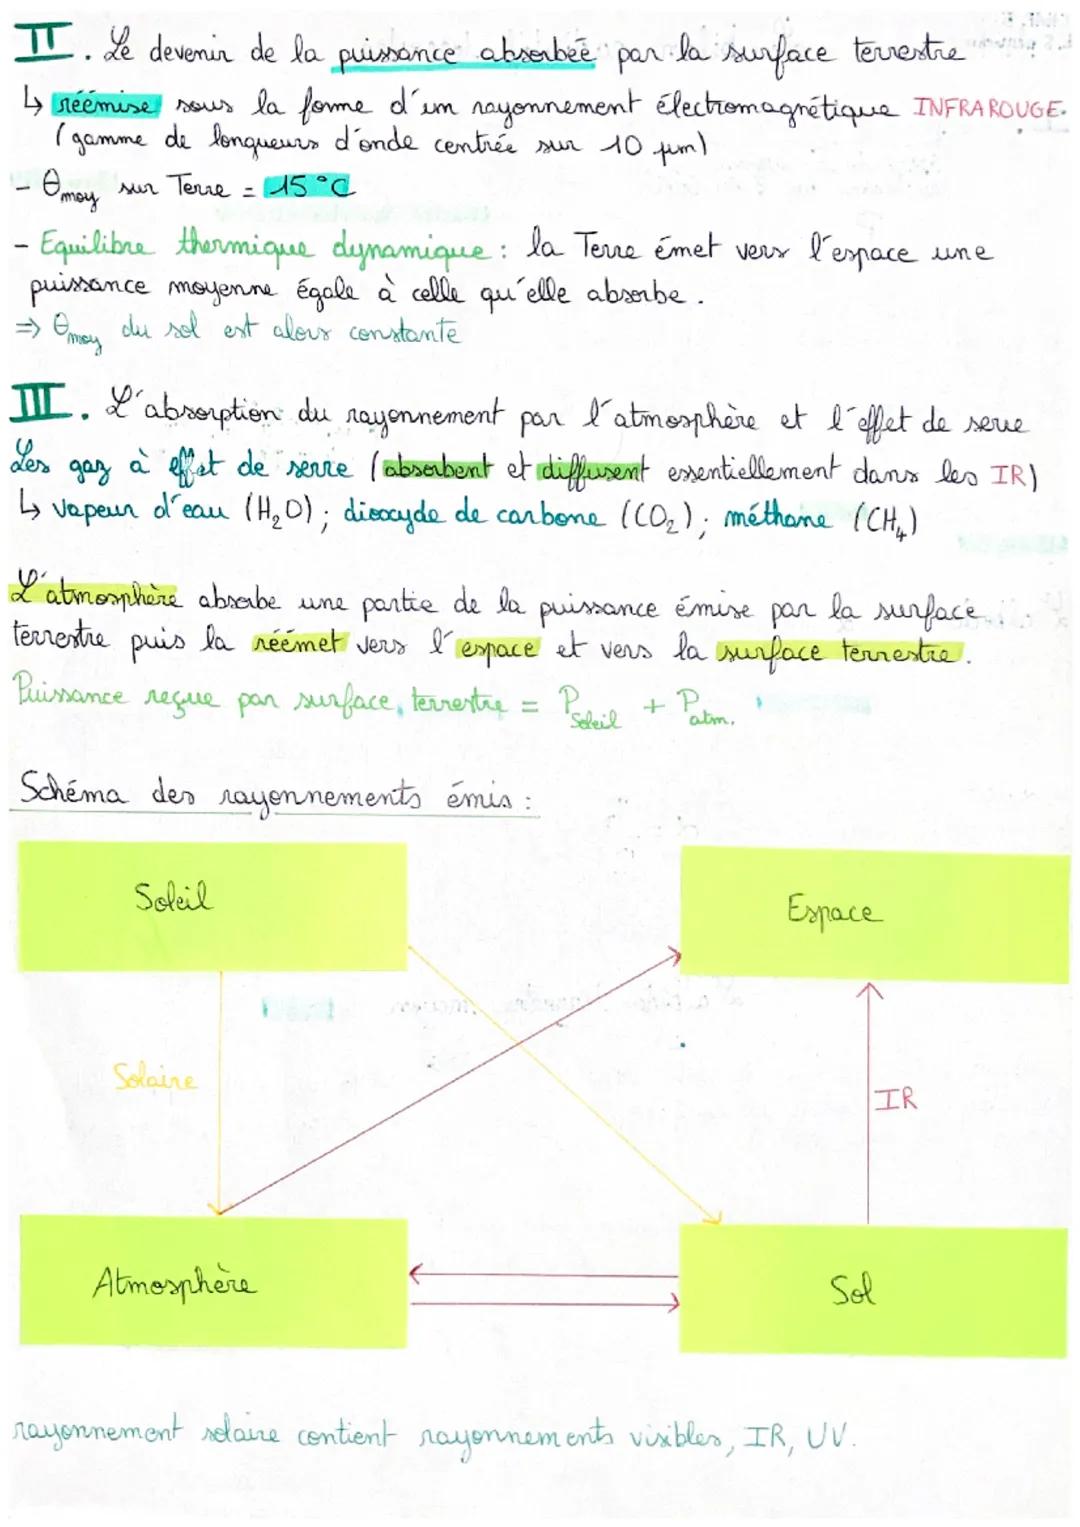 II. Le devenir de la puissance absorbée par la surface terrestre
↳ réémise sous la forme d'un rayonnement électromagnétique INFRAROUGE.
(gamme de longueurs d'onde centrée sur 10 µm)
- θmoy sur Terre = 15°C
- Equilibre thermique dynamique : la Terre émet vers l'espace une
puissance moyenne égale à celle qu'elle absorbe.
=> θmoy du sol est alors constante
III. L'absorption du rayonnement par l'atmosphère et l'effet de serre
Les gaz à effet de serre (absorbent et diffusent essentiellement dans les IR)
↳ vapeur d'eau (H₂O) ; dioxyde de carbone (CO₂) ; méthane (CH₄)
L'atmosphère absorbe une partie de la puissance émise par la surface
terrestre puis la réémet vers l'espace et vers la surface terrestre.
Puissance reçue par surface terrestre = P Soleil + P atm.
Schéma des rayonnements émis :
Soleil
Espace
Solaire
IR
Atmosphère
Sol
rayonnement solaire contient rayonnements visibles, IR, UV.